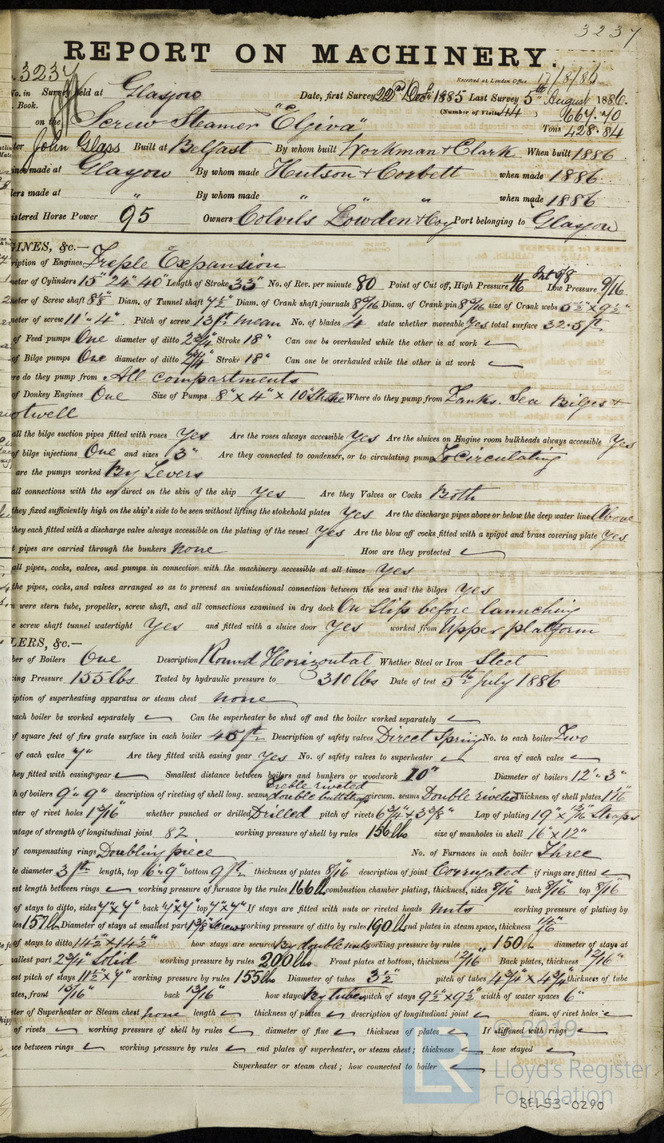 3237
REPORT ON MACHINERY.
3237
Received at London Office 17/8/86
No. in Survey held at Glasgow Date, first Survey 22nd Dec 1885 Last Survey 5th August 1886.
Book. (Number of Visits 44)
on the Screw Steamer "Elgiva" Tons 667.70
428.84
ter John Glass Built at Belfast By whom built Workman & Clark When built 1886
ines made at Glasgow By whom made Hutson & Corbett when made 1886
lers made at " By whom made " " when made 1886
istered Horse Power 95 Owners Colvils Lowden & Coy Port belonging to Glasgow
GINES, &c.—
ription of Engines Treple Expansion
meter of Cylinders 15" 24" 40" Length of Stroke 33" No. of Rev. per minute 80 Point of Cut off, High Pressure Int 5/8 Low Pressure 9/16
meter of Screw shaft 8½ Diam. of Tunnel shaft 7½ Diam. of Crank shaft journals 8 Diam. of Crank pin 8 size of Crank webs 5½" x 9½"
meter of screw 11' 4" Pitch of screw 13 ft mean No. of blades 4 state whether moveable Yes total surface 32.5 ft
of Feed pumps One diameter of ditto 2¾" Stroke 18" Can one be overhauled while the other is at work
of Bilge pumps One diameter of ditto Stroke 18" Can one be overhauled while the other is at work
ere do they pump from All compartments
of Donkey Engines One Size of Pumps 8" x 4" x 10" Stroke Where do they pump from Tanks. Sea Bilges &
Hotwell
all the bilge suction pipes fitted with roses Yes Are the roses always accessible Yes Are the sluices on Engine room bulkheads always accessible Yes
of bilge injections One and sizes 3" Are they connected to condenser, or to circulating pump To Circulating
are the pumps worked By Levers
all connections with the sea direct on the skin of the ship Yes Are they Valves or Cocks Both
they fixed sufficiently high on the ship's side to be seen without lifting the stokehold plates Yes Are the discharge pipes above or below the deep water line Above
they each fitted with a discharge valve always accessible on the plating of the vessel Yes Are the blow off cocks fitted with a spigot and brass covering plate Yes
t pipes are carried through the bunkers None How are they protected
all pipes, cocks, valves, and pumps in connection with the machinery accessible at all times Yes
the pipes, cocks, and valves arranged so as to prevent an unintentional connection between the sea and the bilges Yes
n were stern tube, propeller, screw shaft, and all connections examined in dry dock On Slip before launching
e screw shaft tunnel watertight Yes and fitted with a sluice door Yes worked from Upper platform
LERS, &c.—
ber of Boilers One Description Round Horizontal Whether Steel or Iron Steel
king Pressure 155 lbs Tested by hydraulic pressure to 310 lbs Date of test 5th July 1886
iption of superheating apparatus or steam chest none
each boiler be worked separately Can the superheater be shut off and the boiler worked separately
of square feet of fire grate surface in each boiler 45 ft Description of safety valves Direct Spring No. to each boiler Two
of each valve 7" Are they fitted with easing gear Yes No. of safety valves to superheater area of each valve
they fitted with easing gear Smallest distance between boilers and bunkers or woodwork 10" Diameter of boilers 12' 3"
h of boilers 9' 9" description of riveting of shell long. seams Treble riveted double buttstraps circum. seams Double riveted Thickness of shell plates
ter of rivet holes 1 1/16 whether punched or drilled Drilled pitch of rivets Lap of plating Straps
ntage of strength of longitudinal joint 82 working pressure of shell by rules 156 lbs size of manholes in shell 16" x 12"
of compensating rings Doubling piece No. of Furnaces in each boiler Three
de diameter 3 ft length, top 6' 9" bottom 9 ft thickness of plates 8/16 description of joint Corrugated if rings are fitted
est length between rings working pressure of furnace by the rules 166 lb combustion chamber plating, thickness, sides 8/16 back 8/16 top 8/16
of stays to ditto, sides 7" x 7" back 7" x 7" top 7" x 7" If stays are fitted with nuts or riveted heads nuts working pressure of plating by
les 157 lb Diameter of stays at smallest part 1 3/8 Screw working pressure of ditto by rules 190 lb end plates in steam space, thickness 14/16
of stays to ditto 14½ x 14½ how stays are secured By double nuts working pressure by rules 150 lb diameter of stays at
mallest part 2¾ Solid working pressure by rules 200 lbs Front plates at bottom, thickness 12/16" Back plates, thickness 12/16"
est pitch of stays 11½" x 7" working pressure by rules 155 lb Diameter of tubes 3½ pitch of tubes 4¾" x 4¾" thickness of tube
ates, front 13/16" back 13/16" how stayed By tubes pitch of stays 9½ x 9½ width of water spaces 6"
ter of Superheater or Steam chest none length thickness of plates description of longitudinal joint diam. of rivet holes
of rivets working pressure of shell by rules diameter of flue thickness of plates If stiffened with rings
nce between rings working pressure by rules end plates of superheater, or steam chest; thickness how stayed
Superheater or steam chest; how connected to boiler
2019
LR
Lloyd's Register
Foundation
BEL53-0290